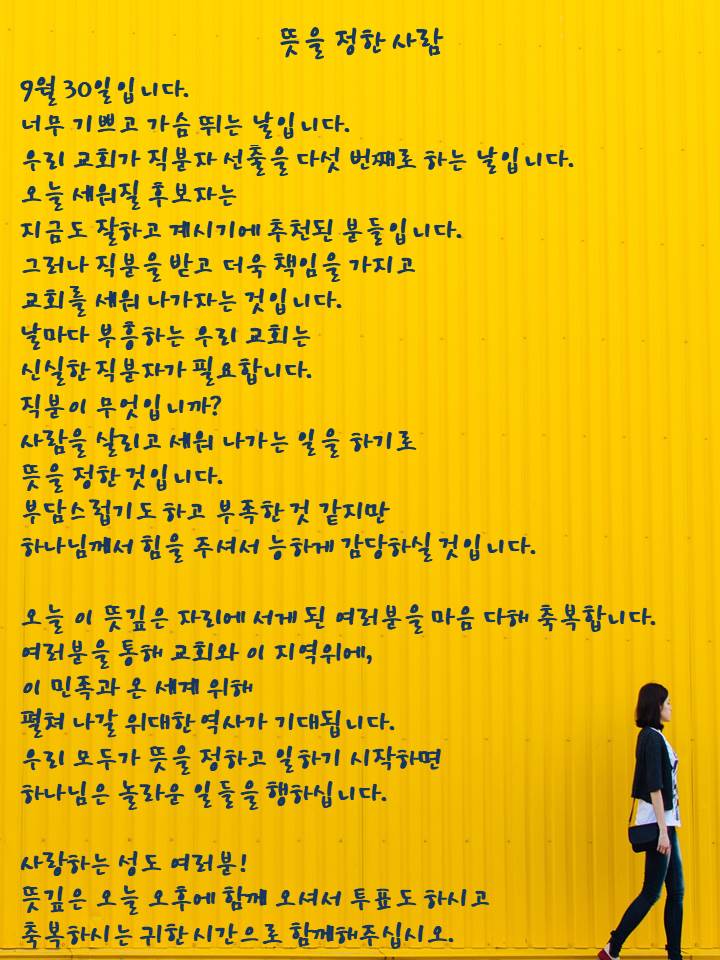 뜻을 정한 사람
9월 30일입니다.
너무 기쁘고 가슴 뛰는 날입니다.
우리 교회가 직분자 선출을 다섯 번째로 하는 날입니다.
오늘 세워질 후보자는
지금도 잘하고 계시기에 추천된 분들입니다.
그러나 직분을 받고 더욱 책임을 가지고
교회를 세워 나가자는 것입니다.
날마다 부흥하는 우리 교회는
신실한 직분자가 필요합니다.
직분이 무엇입니까?
사람을 살리고 세워 나가는 일을 하기로
뜻을 정한 것입니다.
부담스럽기도 하고 부족한 것 같지만
하나님께서 힘을 주셔서 능하게 감당하실 것입니다.
오늘 이 뜻깊은 자리에 서게 된 여러분을 마음 다해 축복합니다.
여러분을 통해 교회와 이 지역위에,
이 민족과 온 세계 위해
펼쳐 나갈 위대한 역사가 기대됩니다.
우리 모두가 뜻을 정하고 일하기 시작하면
하나님은 놀라운 일들을 행하십니다.
사랑하는 성도 여러분!
뜻깊은 오늘 오후에 함께 오셔서 투표도 하시고
축복하시는 귀한 시간으로 함께해주십시오.